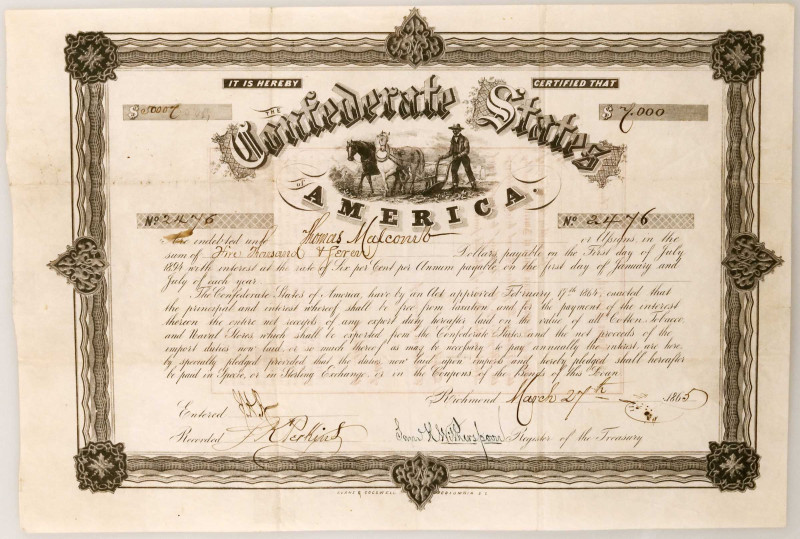 IT IS HEREBY CERTIFIED THAT
THE
Confederate States
of
AMERICA.
No 2476 No 2476
are indebted unto Thomas Malcomb or Assigns, in the
sum of Five Thousand & Seven Dollars payable on the First day of July
1894 with interest at the rate of Six per Cent per Annum payable, on the first day of January and
July of each year
The Confederate States of America, have by an Act approved February 17th 1864, enacted that
the principal and interest whereof shall be free from taxation and for the payment of the interest
thereon the entire net receipts of any export duty hereafter laid on the value of all Cotton, Tobacco
and Naval Stores which shall be exported from the Confederate States, and the net proceeds of the
import duties now laid or so much thereof as may be necessary to pay annually the interest are here
by specially pledged provided that the duties now laid upon imports and hereby pledged shall hereafter
be paid in Specie, or in Sterling Exchange, or in the Coupons of the Bonds of this Loan
Richmond March 27th 1865
Entered
Recorded J. K. Perkins Register of the Treasury
EVANS & COGSWELL COLUMBIA S.C.